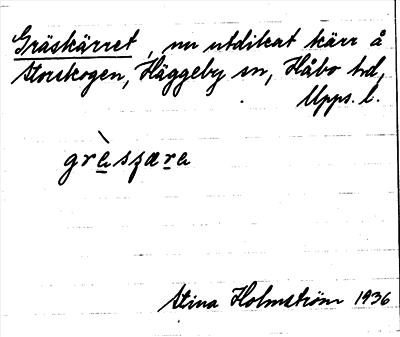 Gräskärret, nu utdikat kärr å
Storskogen, Häggeby sn, Håbo hd,
Upps. l.
grèsʒæra
Stina Holmström 1936